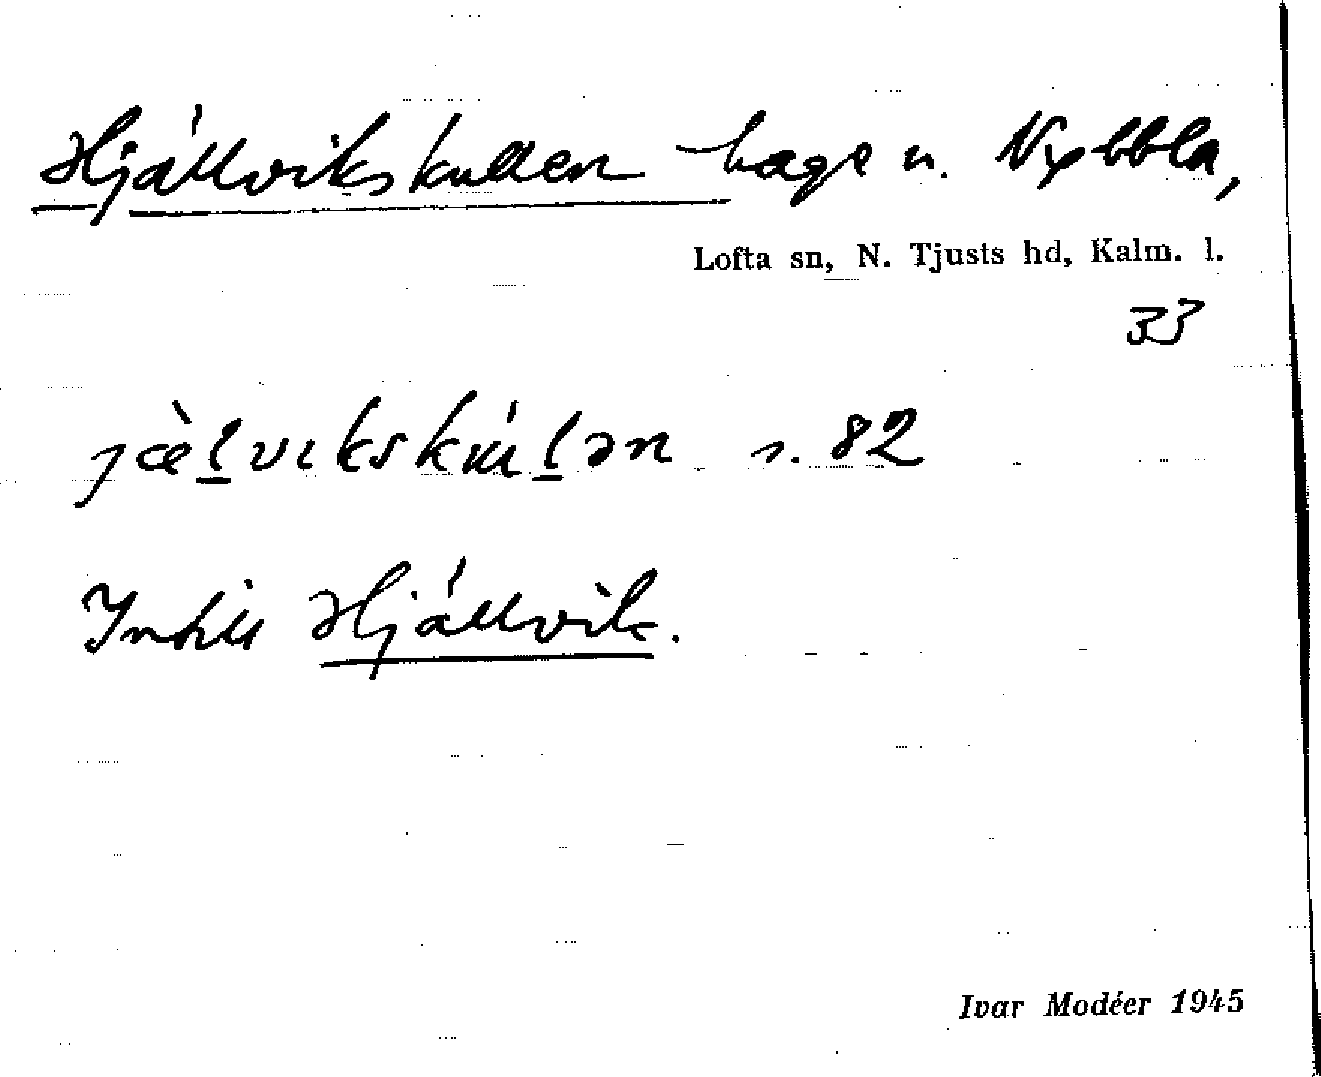 Hjällvikskullen hage u. Nybbla,
Lofta sn, N. Tjusts hd, Kalm. l.
33
jæ̀l̲vɩkskúl̲ən s. 82
Intill Hjällvik.
Ivar Modéer 1945